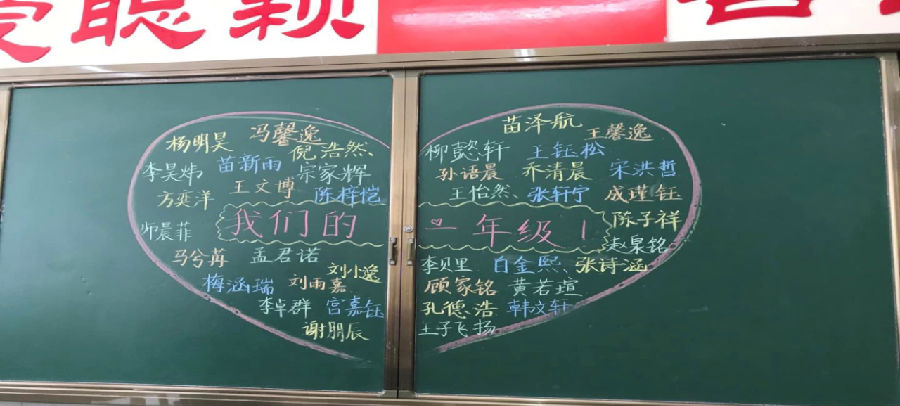 聪颖
杨明昊 冯馨逸
倪浩然
李昊炜 苗新雨 宗家辉
方奕洋 王文博 陈梓恺
我们的
师晨菲
马兮苒 孟君诺
刘小逸
梅涵瑞 刘雨嘉
李卓群 宫嘉钰
谢朋辰
苗泽航 王馨逸
柳懿轩 王钰松
孙语晨 乔清晨 宋洪哲
王怡然 张轩宁 成瑾钰
陈子祥
一年级1
赵泉铭
李贝里 白金熙 张诗涵
顾家铭 黄若瑄
孔德浩 韩文轩
王子飞扬